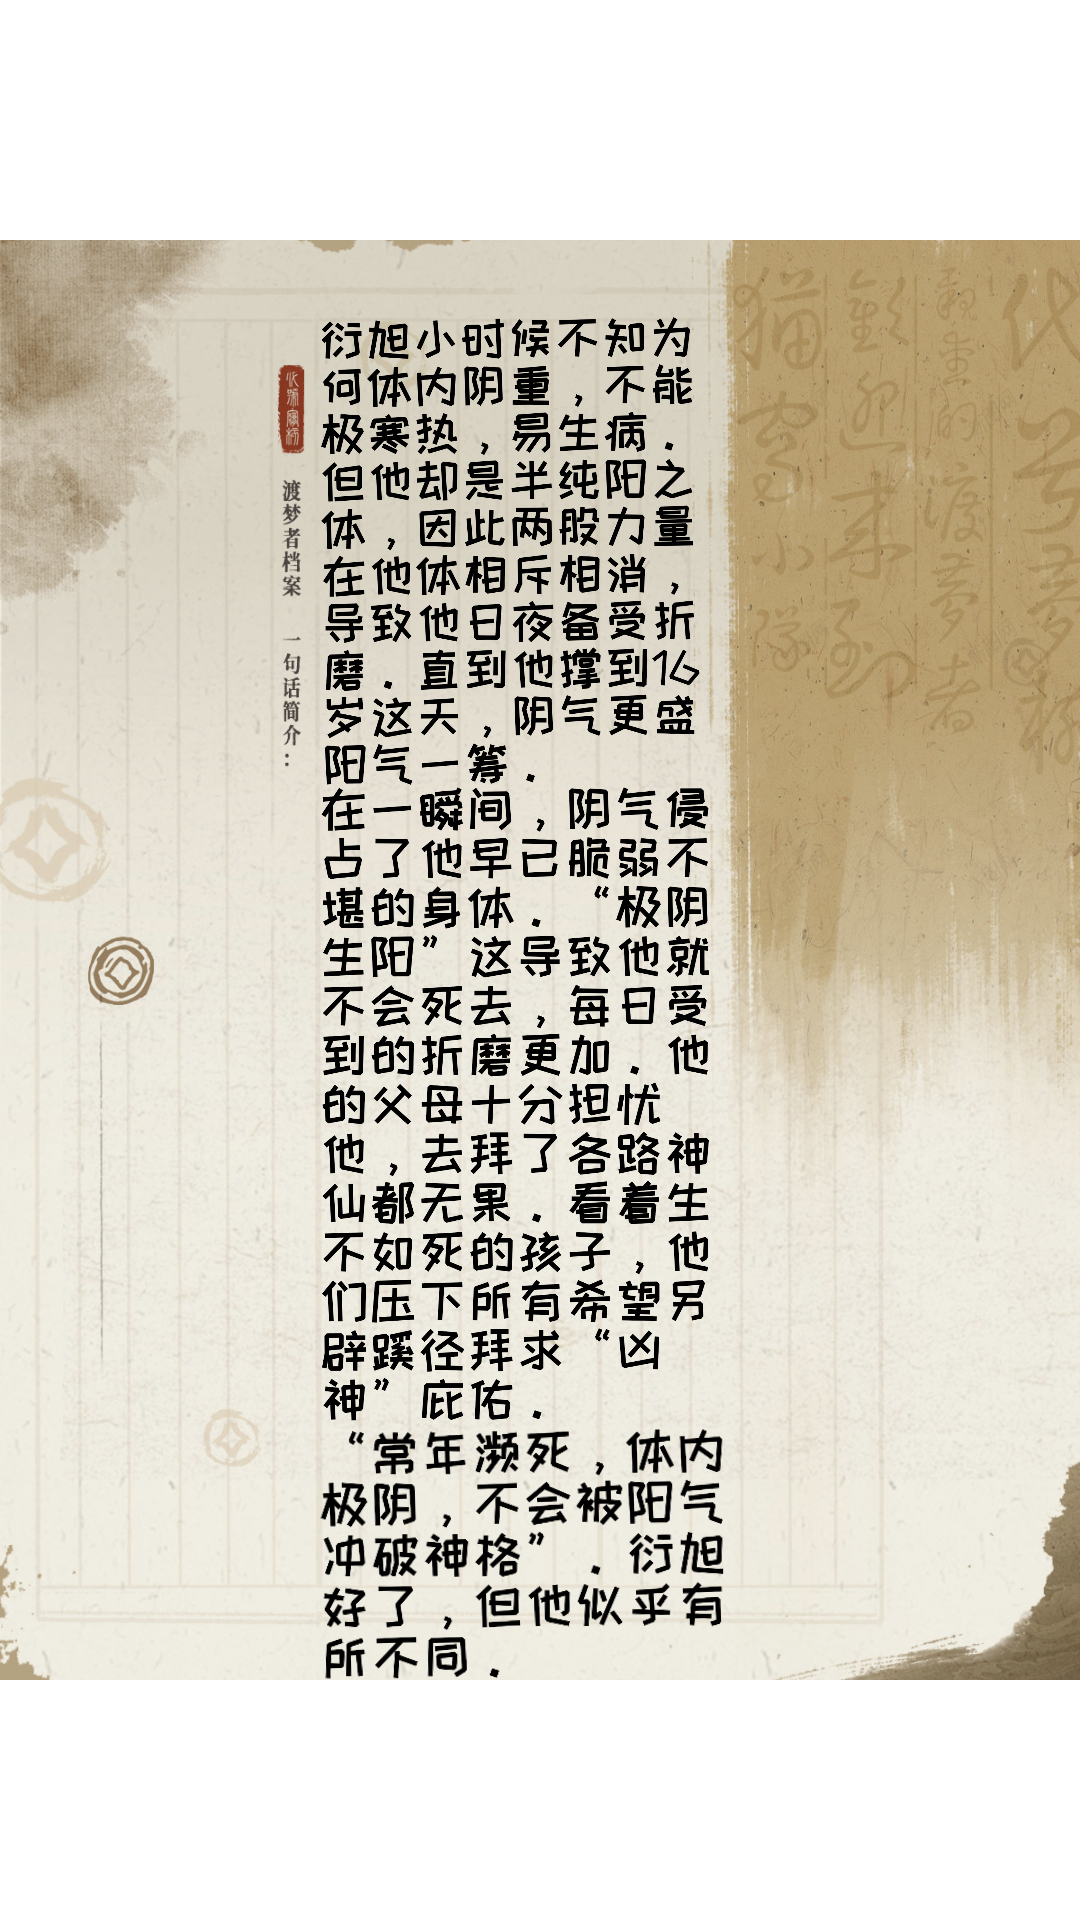 衍旭小时候不知为
何体内阴重，不能
极寒热，易生病.
但他却是半纯阳之
体，因此两股力量
在他体相斥相消，
导致他日夜备受折
磨.直到他撑到16
岁这天，阴气更盛
阳气一筹.
在一瞬间，阴气侵
占了他早已脆弱不
堪的身体.“极阴
生阳”这导致他就
不会死去，每日受
到的折磨更加.他
的父母十分担忧
他，去拜了各路神
仙都无果.看着生
不如死的孩子，他
们压下所有希望另
辟蹊径拜求“凶
神”庇佑.
“常年濒死，体内
极阴，不会被阳气
冲破神格”.衍旭
好了，但他似乎有
所不同.
渡梦者档案 一句话简介：